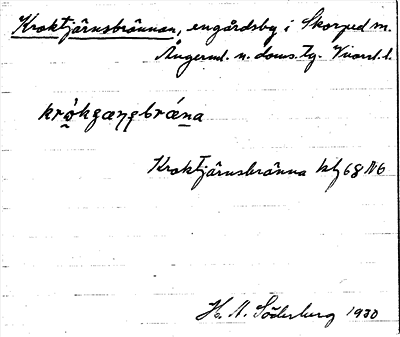 Kroktjärnsbrännan, engårdsby i Skorped sn.
Ångerml. n. doms. tg.
krò̱kgæŋɐbrǽna
Kroktjärnsbränna kbl 68 NÖ
H. A. Söderberg 1930